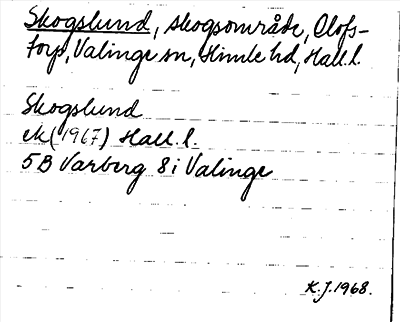 Skogslund, skogsområde, Olofs-
torp, Valinge sn, Himle hd, Hall. l.
Skogslund
ek (1967) Hall. l.
5B Varberg 8i Valinge
K.J. 1968.